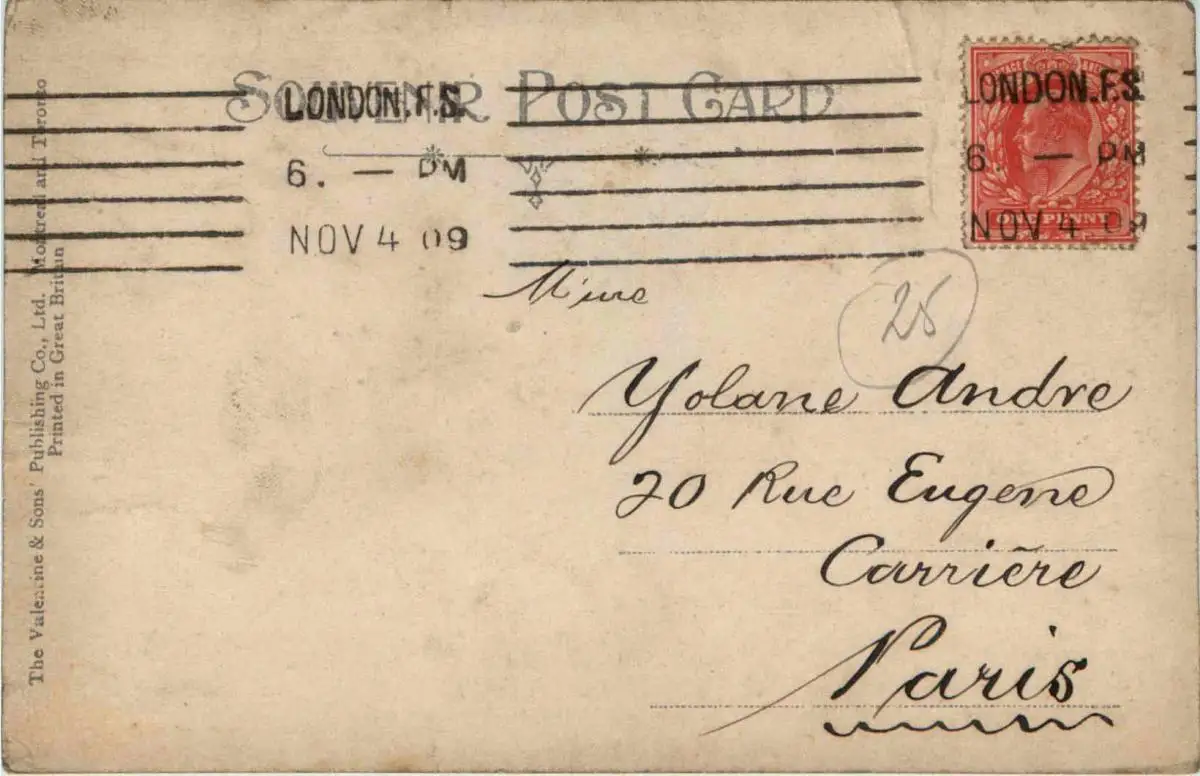 SOUVENIR POST CARD
LONDON.F.S.
6. — PM
NOV 4 09
LONDON.F.S.
6. — PM
NOV 4 09
POSTAGE
ONE PENNY
Mme
25
Yolane Andre
20 Rue Eugene
Carrière
Paris
The Valentine & Sons' Publishing Co., Ltd. Montreal and Toronto
Printed in Great Britain